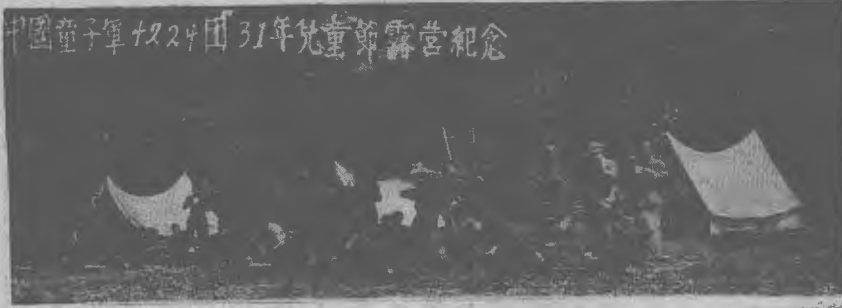 中國童子軍4224団31年兒童節露营紀念